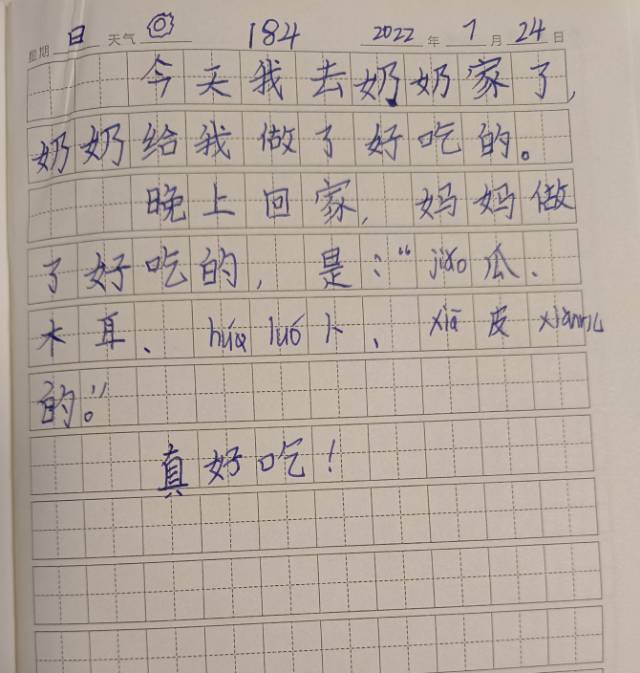 星期 日 天气 184 2022 年 7 月 24 日
今天我去奶奶家了,
奶奶给我做了好吃的。
晚上回家, 妈妈做
了好吃的, 是:“jiǎo瓜、
木耳、húa luó卜、xiā皮xiànㄦ
的。”
真好吃!